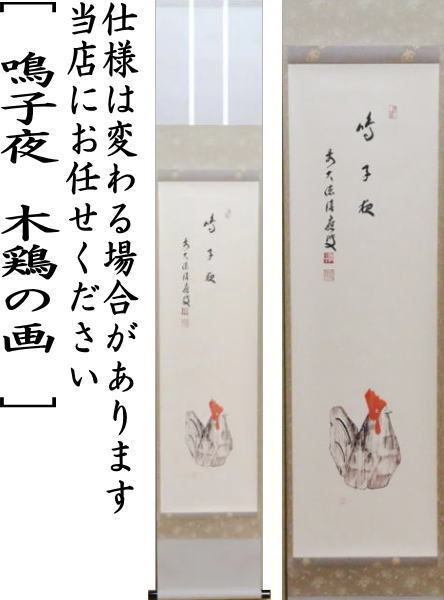 仕様は変わる場合があります
当店にお任せください
［ 鳴子夜 木鶏の画 ］
鳴子夜
鳴子夜